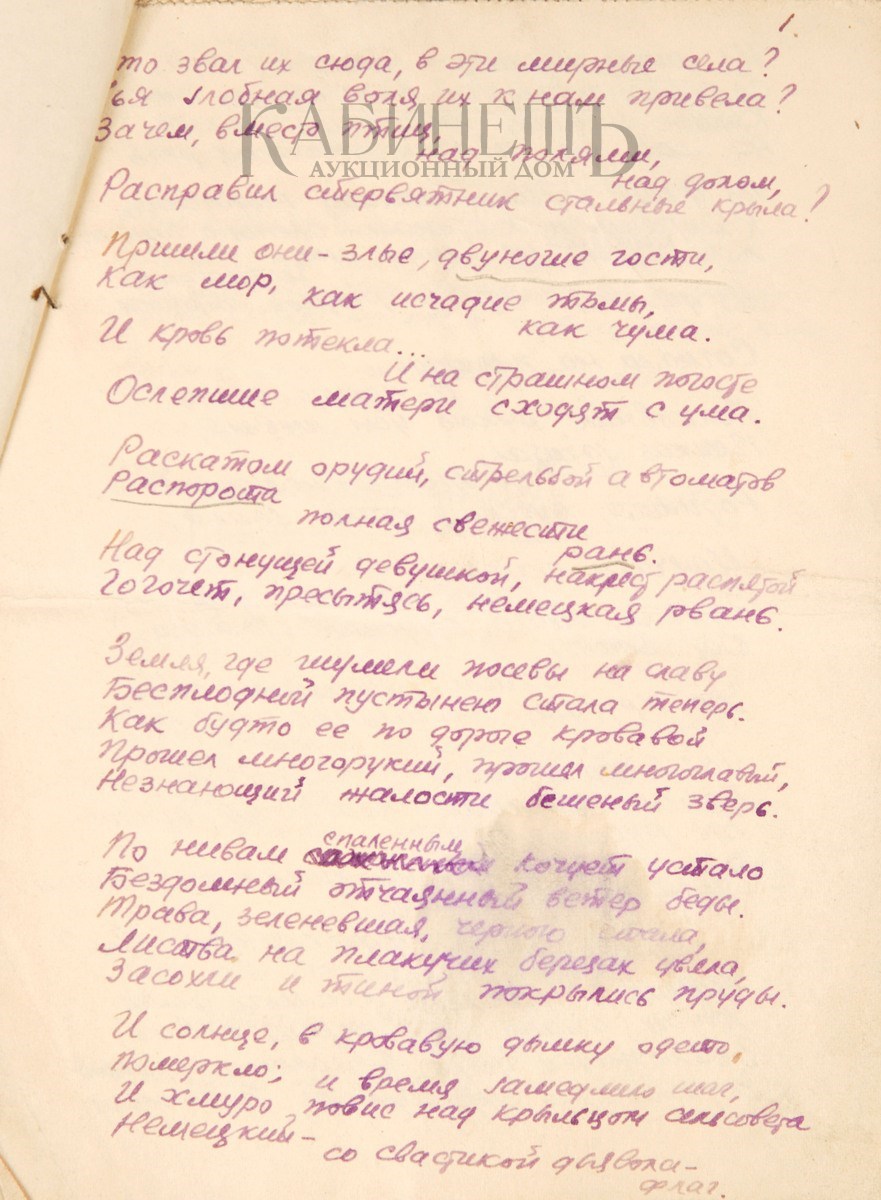 1.
то звал их сюда, в эти мирные села?
ья злобная воля их к нам привела?
Зачем, вместо птиц,
над полями,
над долом,
Расправил стервятник стальные крыла?
КАБИНЕТЪ
АУКЦИОННЫЙ ДОМ
Пришли они – злые, двуногие гости,
Как мор,
как исчадие тьмы,
как чума.
И кровь потекла...
И на страшном погосте
Ослепшие матери сходят с ума.
Раскатом орудий, стрельбой автоматов
Распорота
полная свежести
рань.
Над стонущей девушкой, накрест распятой
Гогочет, пресытясь, немецкая рвань.
Земля, где шумели посевы на славу
Бесплодной пустынею стала теперь.
Как будто ее по дороге кровавой
Прошел многорукий, прошел многоглавый,
Незнающий жалости бешеный зверь.
По нивам спаленным кочует устало
Бездомный отчаянный ветер беды.
Трава, зеленевшая, черного стала,
Листва на плакучих березах увяла,
Засохли и тиной покрылись пруды.
И солнце, в кровавую дымку одето,
померкло; и время замедлило шаг,
И хмуро повис над крыльцом сельсовета
Немецкий –
со свастикой дьявола –
флаг.